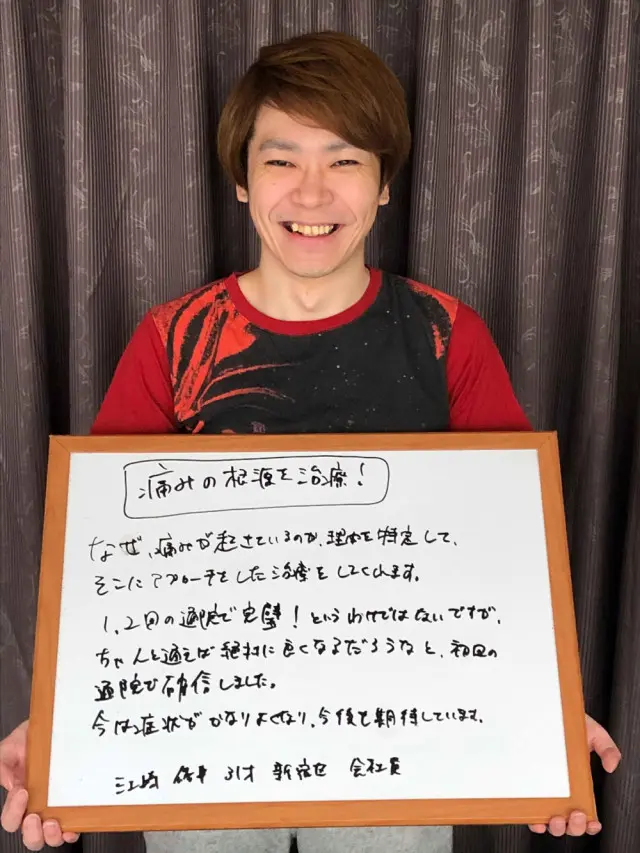 痛みの根源を治療！
なぜ、痛みが起きているのか、理由を特定して、
そこにアプローチをした治療をしてくれます。
1、2回の通院で完璧！というわけではないですが、
ちゃんと通えば絶対に良くなるだろうなと、初回の
通院で確信しました。
今は症状がかなりよくなり、今後も期待しています。
江崎 31才 新宿区 会社員